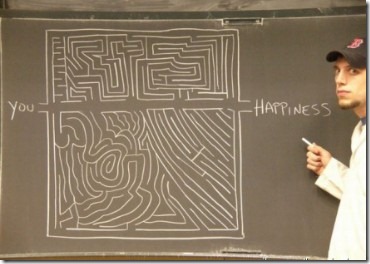 YOU
HAPPINESS